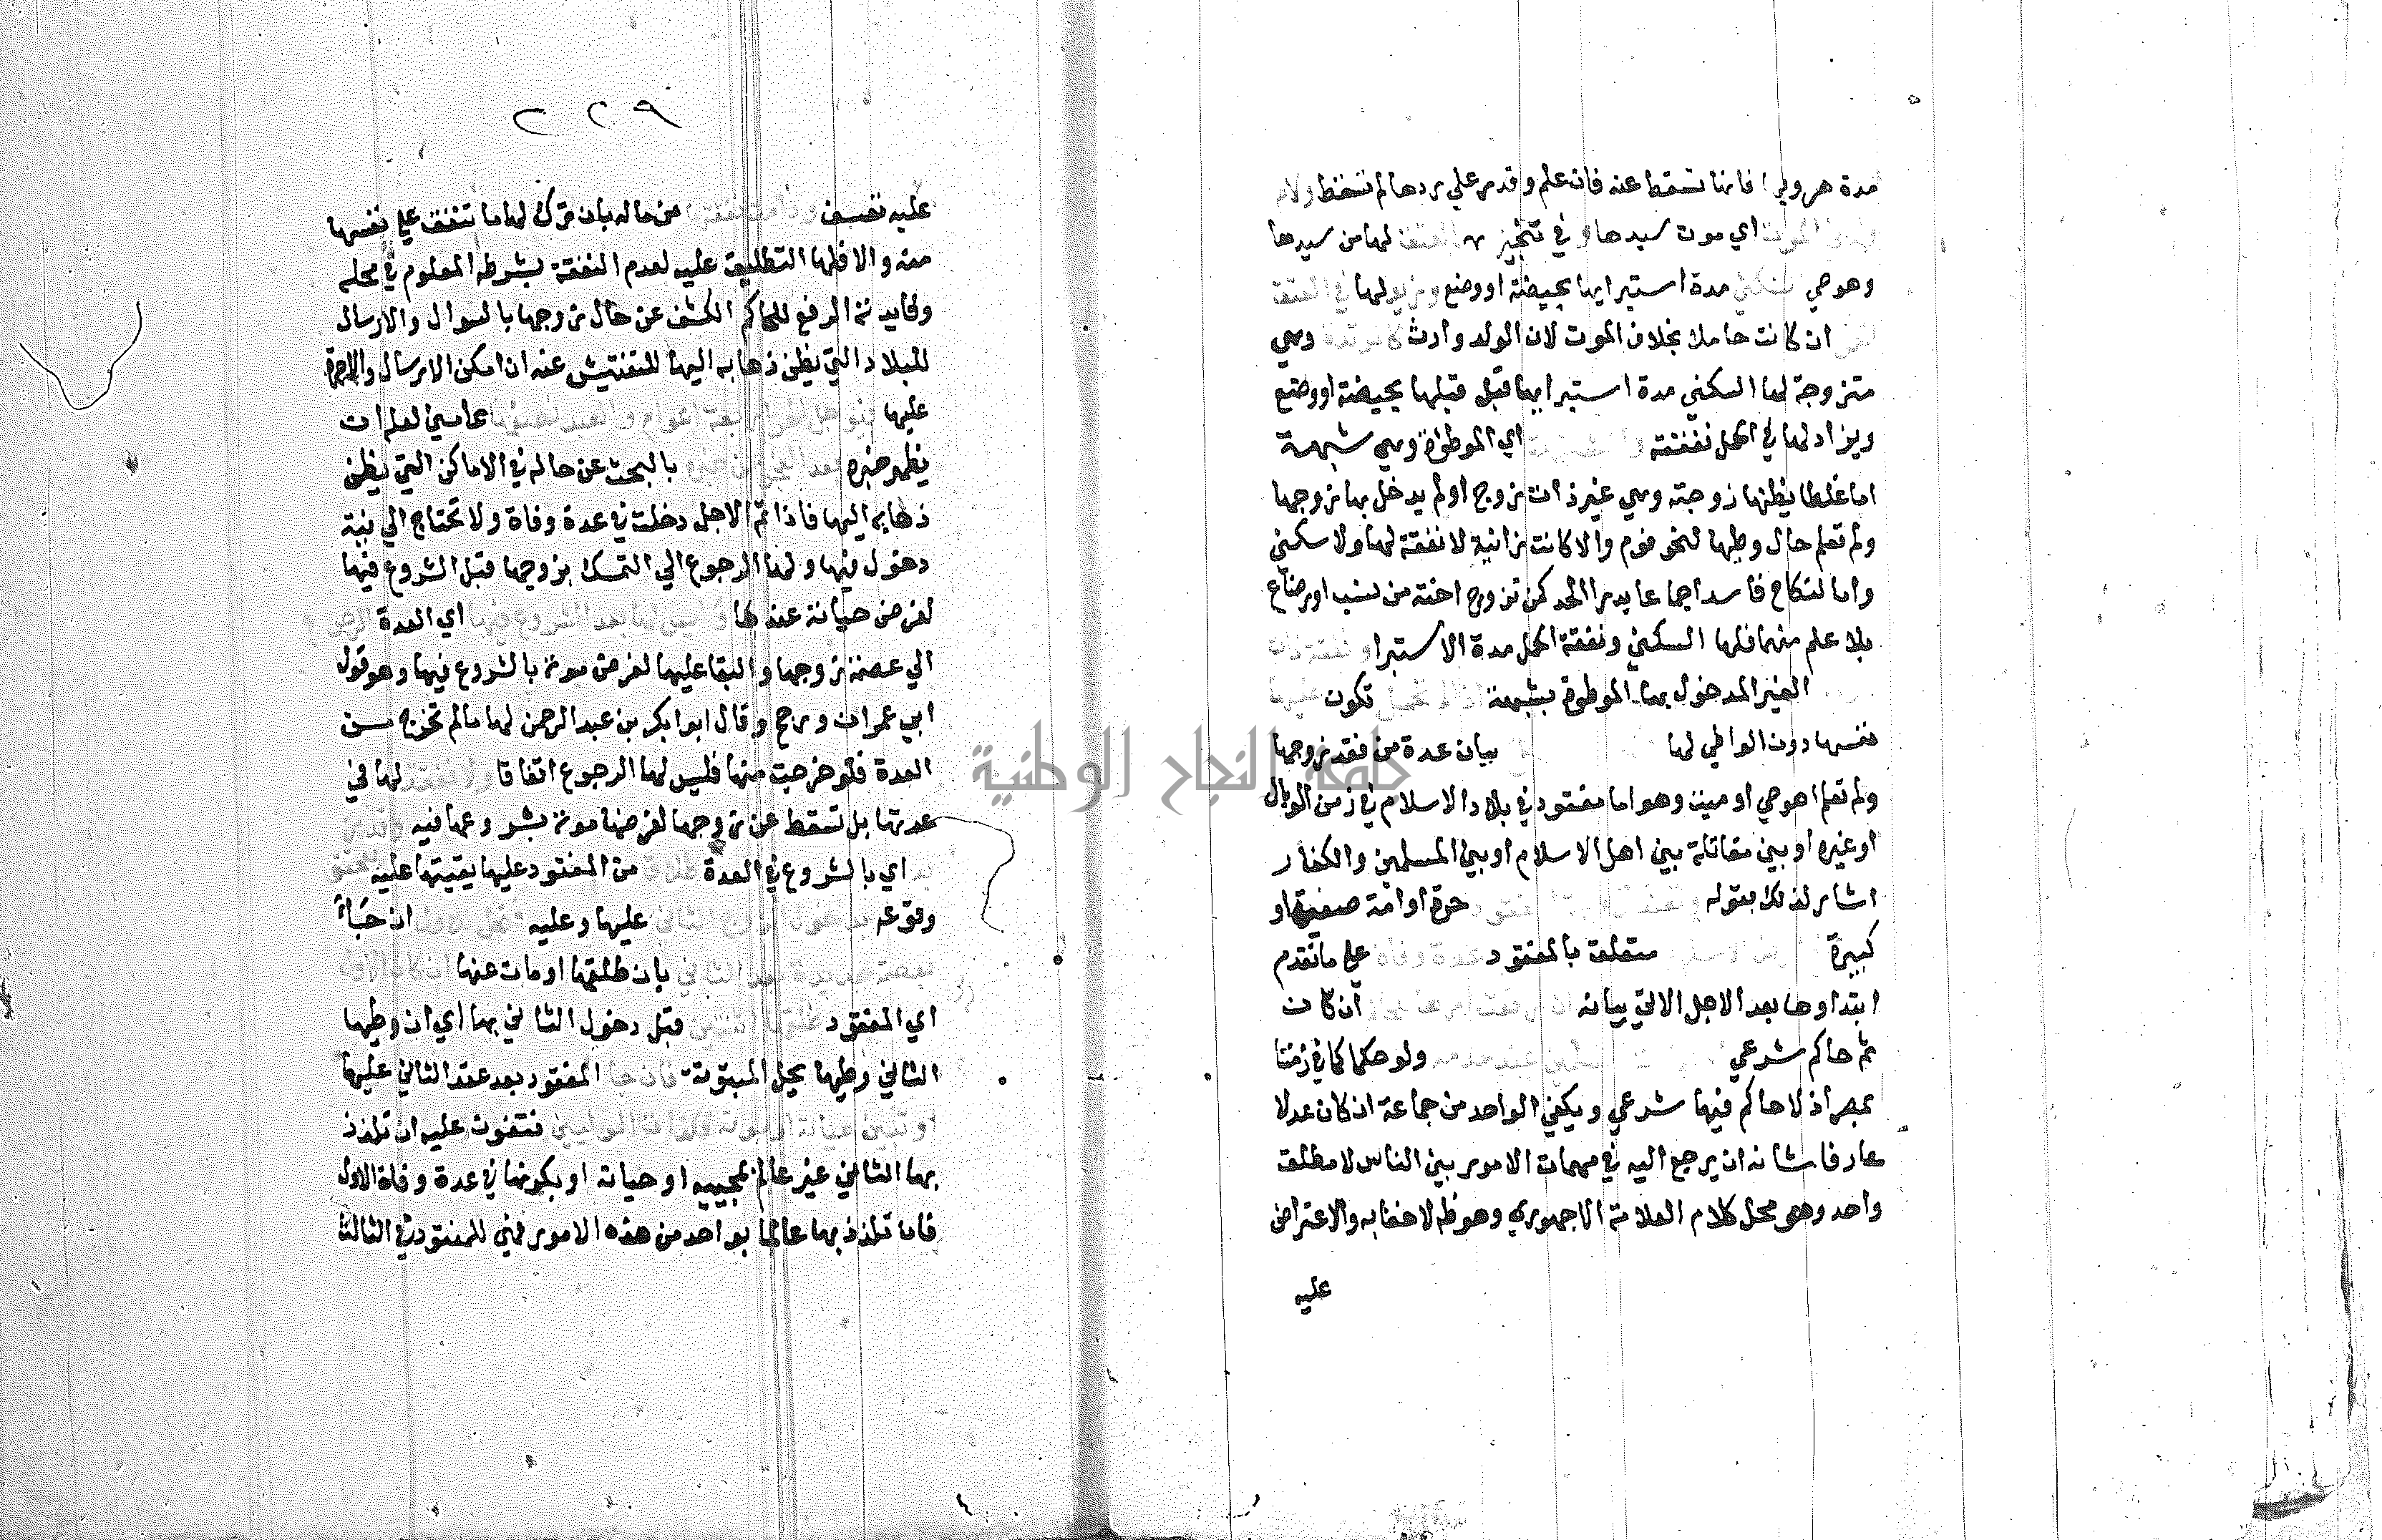 مدة هروبها فانها تسقط عنه فان علم وقدر علي ردها لم تسقط
اي موت سيدها وفي تنجيز لها من سيدها
وهو حي مدة استبرايها بحيضة او وضع ويزيد لها في العتق
ان كانت حاملا بخلاف الموت لان الولد وارث وهي
متزوجة لها السكني مدة استبرايها قبل قبلها بحيضة او وضع
ويزاد لها في الحمل نفقته اي الموطؤة وهي شبهة
اما غلطا يظنها زوجته وهي غير ذات زوج او لم يدخل بها زوجها
ولم تعلم حال وطيها لنحو نوم والا كانت زانية لا نفقة لها ولا سكني
واما لنكاح فاسد اجماعا يدرا الحد كمن تزوج اخته من نسب او رضاع
بلا علم منهما فلها السكني ونفقة الحمل مدة الاستبرا ونفقة ذات
الغير المدخول بها الموطوة بشبهة اذا لم تحمل تكون عليها
نفسها دون الواطي لها بيان عدة من فقد زوجها
ولم تعلم اهو حي او ميت وهو اما مفقود في بلاد الاسلام في زمن الوبال
او غيره او بين مقاتلة بين اهل الاسلام او بين المسلمين والكفار
اشار لذلك بقوله وتعتد زوجة المفقود حرة او امة صغيرة او
كبيرة متعلق بالمفقود عدة وفاة علي ما تقدم
ابتداوها بعد الاجل الاتي بيانه ان رفعت امرها ان كان
ثم حاكم شرعي ولو حكما كما في زمننا
بمصر اذ لا حاكم فيها شرعي ويكفي الواحد من جماعة ان كان عدلا
عارفا شانه ان يرجع اليه في مهمات الامور بين الناس لا مطلق
واحد وهو محل كلام العلامة الاجهوري وهو ظ لا خفا به والاعتراض
عليه
٢٢٩
عليه تعسف من ماله بان ترك لها ما تنفق علي نفسها
منه والا فلها التطليق عليه لعدم النفقة بشرطه المعلوم في محله
وفايدة الرفع للحاكم الكشف عن حال زوجها بالسوال والارسال
للبلاد التي يظن ذهابه اليها للتفتيش عنه ان امكن الارسال والاجرة
عليها فيوجل الحر اربعة اعوام والعبد نصفها عامين لعله ان
يظهر خبره بعد العجز عن خبره بالبحث عن حاله في الاماكن التي يظن
ذهابه اليها فاذا تم الاجل دخلت في عدة وفاة ولا تحتاج الي نية
دخول فيها ولها الرجوع الي التمسك بزوجها قبل الشروع فيها
لفرض حياته عندها وليس لها بعد الشروع فيها اي العدة الرجوع
الي عصمة زوجها والبقا عليها لفرض موته بالشروع فيها وهو قول
ابي عمران ورجح وقال ابو ابكر بن عبد الرحمن لها مالم تخرج من
العدة فلو خرجت منها فليس لها الرجوع اتفاقا ولا نفقة لها في
عدتها بل تسقط عن زوجها لفرضها موته بشرو عها فيه وقدر
به اي بالشروع في العدة طلاق من المفقود عليها يفيتها عليه يتحقق
وقوعه بدخول الزوج الثاني عليها وعليه فتحل للاول ان جاء
بعصمة جديدة بعد الثاني بان طلقها او مات عنها ان كان الاول
اي المفقود طلقها اثنتين قبل دخول الثاني بها اي ان وطيها
الثاني وطيها يحل المبتوتة فان جا المفقود بعد عقد الثاني عليها
او تبين حياته او موته فكذات الوليين فتفوت عليه ان تلذذ
بها الثاني غير عالم بمجييه او حياته او بكونها في عدة وفاة الاول
فان تلذذ بها عالما بواحد من هذه الامور فهي للمفقود في الثالث
جامعة النجاح الوطنية